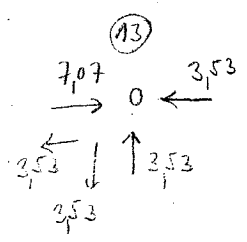 13
7,07
0
3,53
3,53
3,53
3,53